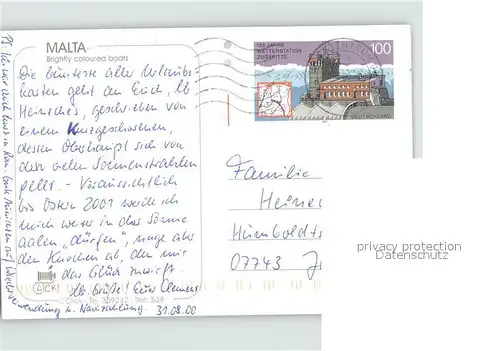 MALTA
Brightly coloured boats
Die bunteste aller Urlaubs-
karten geht an Euch, lb
Heineches, geschrieben von
einem Kurzgeschorenen,
dessen Oberhaupt sich von
den vielen Sonnenstrahlen
pellt. - Voraussichtlich
bis Ostern 2001 werde ich
mich weiter in der Sonne
aalen „dürfen", nage aber
den Knochen ab, den mir
das Glück zuwirft.
lb. Grüße! Euer Clemens
31.08.00
CLICK!
Click, Tel: 309242 - Ref: 539
100 JAHRE
WETTERSTATION
ZUGSPITZE
100
DEUTSCHLAND
Familie
Heine
Humboldts
07743 Je
privacy protection
Datenschutz